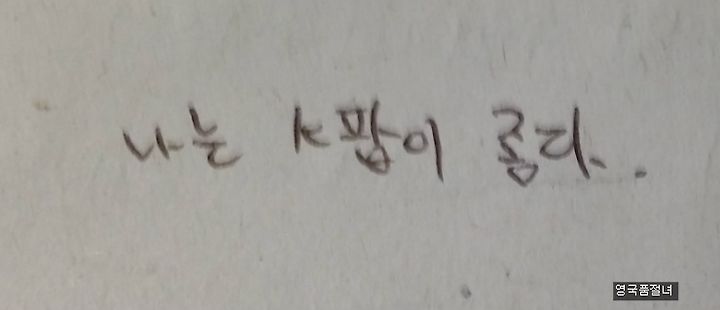 나는 K팝이 좋다.
영국품절녀